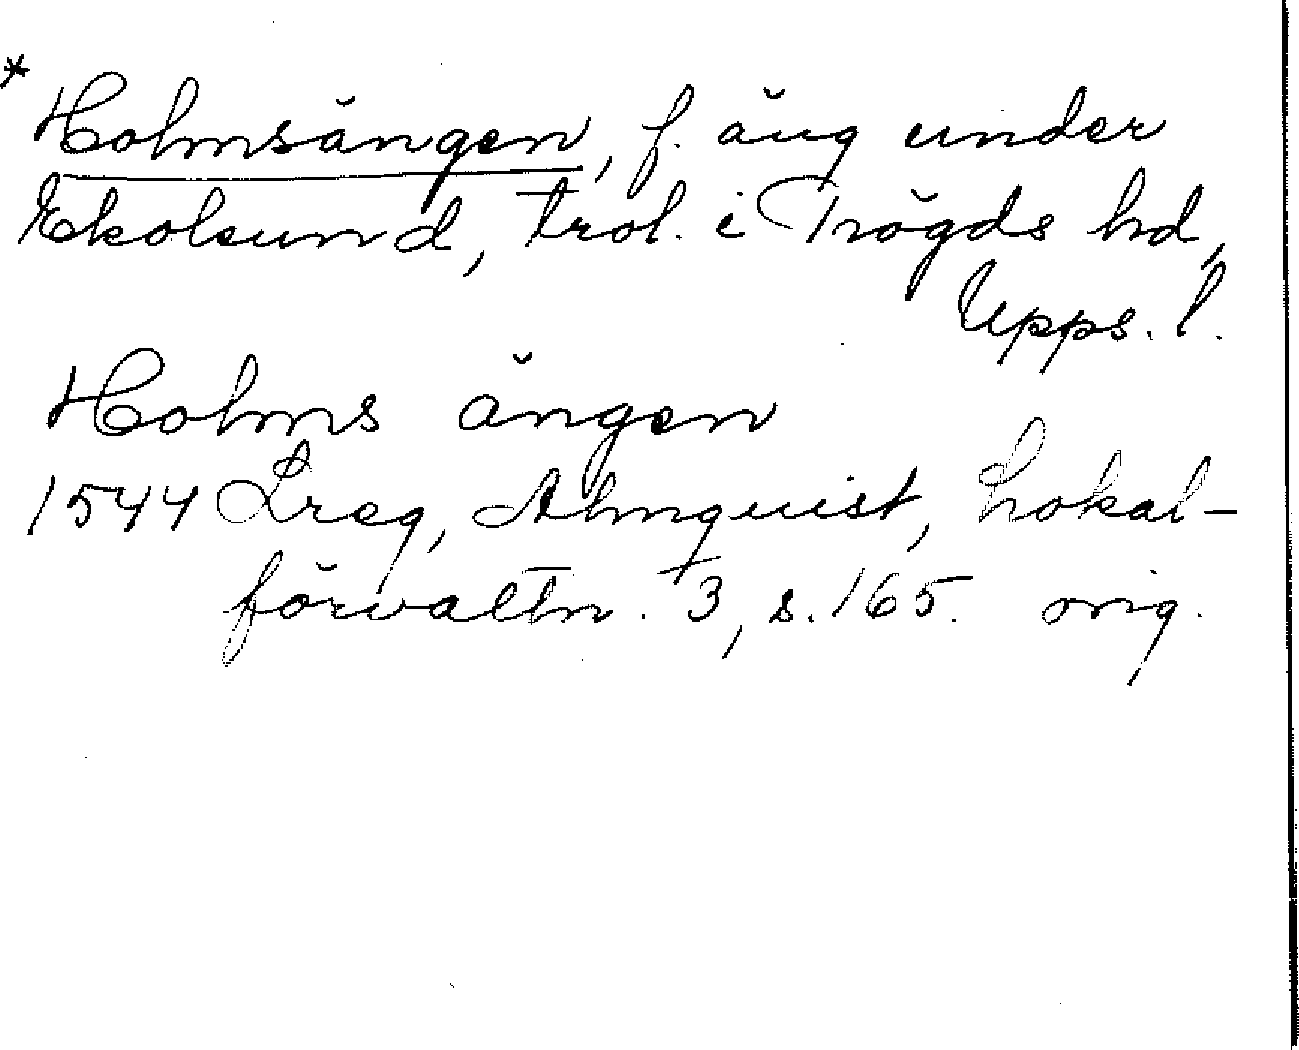 * Holmsängen, f. äng under
Ekolsund, trol. i Trögds hd,
Upps. l.
Holms ängen
1544 Lreg, Almquist, Lokal-
förvaltn. 3, s. 165. orig.